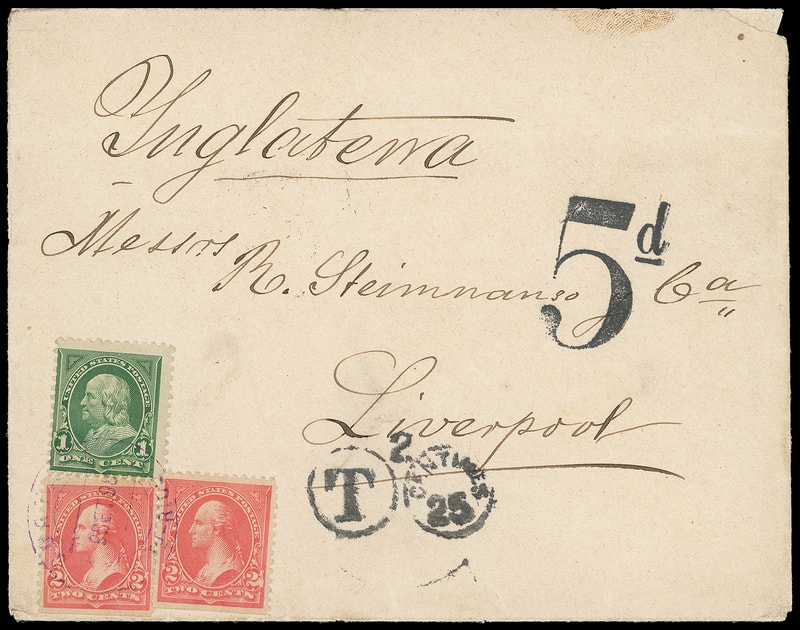 Inglaterra
Messrs
R. Steimnanso y Ca
5d
Liverpool
UNITED STATES POSTAGE
1 1
ONE CENT
2
T
CENTIMES
25
UNITED STATES POSTAGE
2 2
TWO CENTS
UNITED STATES POSTAGE
2 2
TWO CENTS